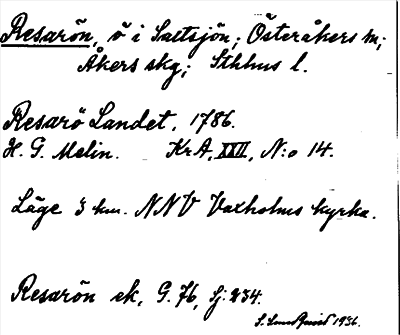 Resarön, ö i Saltsjön; Österåkers sn;
Åkers skg; Sthlms l.
Resarö Landet, 1786.
H. G. Malin. KrA, XXII, N:o 14.
Läge 3 km. NNV Vaxholms kyrka.
Resarön ek, G. 76, Sj: 234.
S. Lundquist 1936.